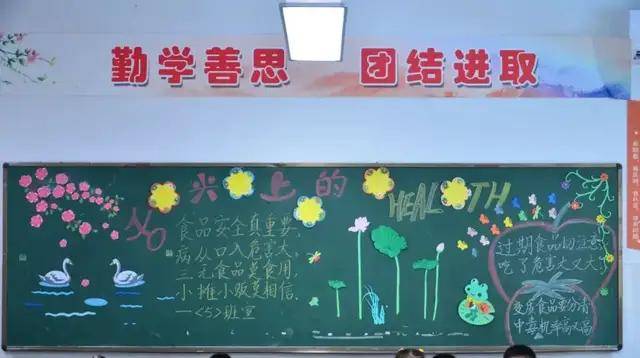 勤学善思 团结进取
尖上的
HEALTH
食品安全真重要
病从口入危害大
三无食品莫食用
小摊小贩莫相信
一<5>班宣
过期食品回注意
吃了危害大又大
变质食品要分清
中毒机率高又高